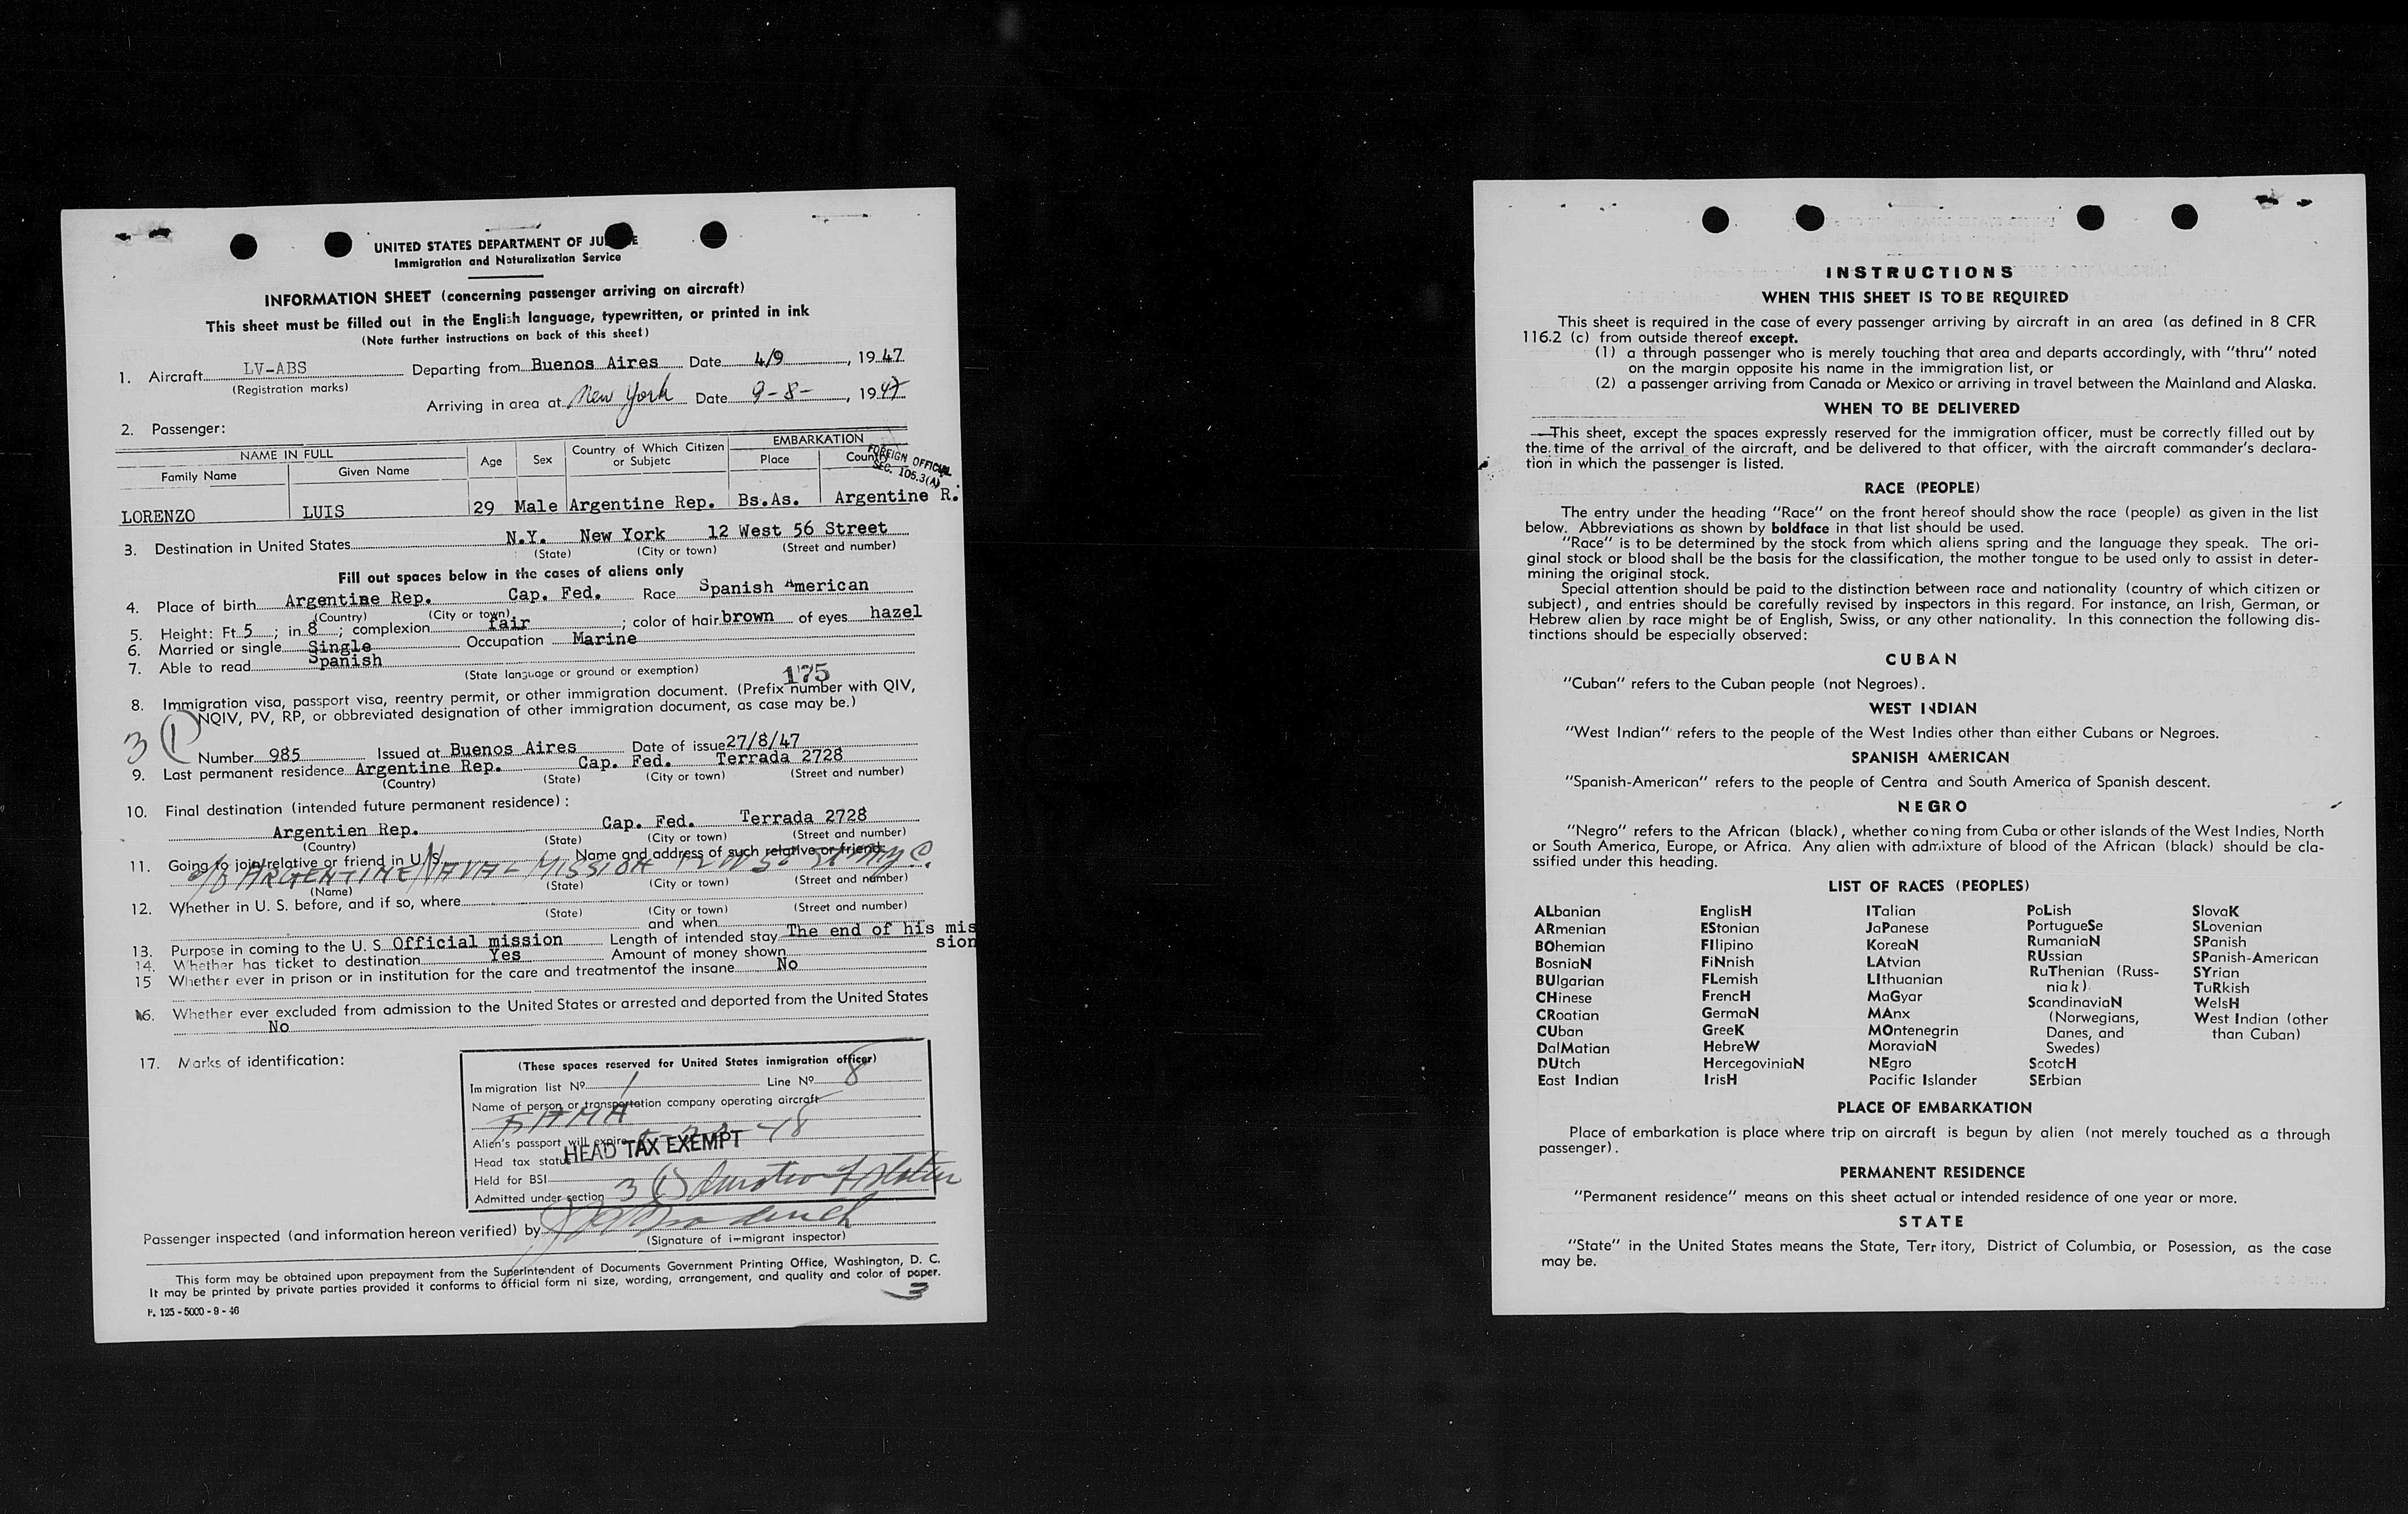 UNITED STATES DEPARTMENT OF JU E
Immigration and Naturalization Service
INFORMATION SHEET (concerning passenger arriving on aircraft)
This sheet must be filled out in the English language, typewritten, or printed in ink
(Note further instructions on back of this sheet)
1. Aircraft LV-ABS Departing from Buenos Aires Date 4/9, 1947
(Registration marks)
Arriving in area at New York Date 9-8-, 1947
2. Passenger:
NAME IN FULL Age Sex Country of Which Citizen or Subjetc EMBARKATION
Family Name Given Name Place Country
FOREIGN OFFICIAL
SEC. 105.3(A)
LORENZO LUIS 29 Male Argentine Rep. Bs.As. Argentine R.
3. Destination in United States N.Y. New York 12 West 56 Street
(State) (City or town) (Street and number)
Fill out spaces below in the cases of aliens only
4. Place of birth Argentine Rep. Cap. Fed. Race Spanish American
(Country) (City or town)
5. Height: Ft 5; in 8; complexion fair; color of hair brown of eyes hazel
6. Married or single Single Occupation Marine
7. Able to read Spanish
(State language or ground or exemption)
175
8. Immigration visa, passport visa, reentry permit, or other immigration document. (Prefix number with QIV,
NQIV, PV, RP, or obbreviated designation of other immigration document, as case may be.)
3 (1)
Number 985 Issued at Buenos Aires Date of issue 27/8/47
9. Last permanent residence Argentine Rep. Cap. Fed. Terrada 2728
(Country) (State) (City or town) (Street and number)
10. Final destination (intended future permanent residece):
Argentien Rep. Cap. Fed. Terrada 2728
(Country) (State) (City or town) (Street and number)
11. Going to join relative or friend in U.S. Name and address of such relative or friend
c/o ARGENTINE NAVAL MISSION 12 W 56 St NYC.
(Name) (State) (City or town) (Street and number)
12. Whether in U. S. before, and if so, where
(State) (City or town) (Street and number)
and when
13. Purpose in coming to the U. S Official mission Length of intended stay The end of his mis
sion
14. Whether has ticket to destination Yes Amount of money shown
15 Whether ever in prison or in institution for the care and treatmentof the insane No
16. Whether ever excluded from admission to the United States or arrested and deported from the United States
No
17. Marks of identification:
(These spaces reserved for United States inmigration officer)
Immigration list Nº 1 Line Nº 8
Name of person or transportation company operating aircraft
FAMA
Alien's passport will expire
Head tax status HEAD TAX EXEMPT
Held for BSI
Admitted under section 3 (1) Duration of Status
Passenger inspected (and information hereon verified) by
(Signature of immigrant inspector)
This form may be obtained upon prepayment from the Superintendent of Documents Government Printing Office, Washington, D. C.
It may be printed by private parties provided it conforms to official form ni size, wording, arrangement, and quality and color of paper.
3
F. 125 - 5000 - 9 - 46
INSTRUCTIONS
WHEN THIS SHEET IS TO BE REQUIRED
This sheet is required in the case of every passenger arriving by aircraft in an area (as defined in 8 CFR
116.2 (c) from outside thereof except.
(1) a through passenger who is merely touching that area and departs accordingly, with "thru" noted
on the margin opposite his name in the immigration list, or
(2) a passenger arriving from Canada or Mexico or arriving in travel between the Mainland and Alaska.
WHEN TO BE DELIVERED
This sheet, except the spaces expressly reserved for the immigration officer, must be correctly filled out by
the time of the arrival of the aircraft, and be delivered to that officer, with the aircraft commander's declara-
tion in which the passenger is listed.
RACE (PEOPLE)
The entry under the heading "Race" on the front hereof should show the race (people) as given in the list
below. Abbreviations as shown by boldface in that list should be used.
"Race" is to be determined by the stock from which aliens spring and the language they speak. The ori-
ginal stock or blood shall be the basis for the classification, the mother tongue to be used only to assist in deter-
mining the original stock.
Special attention should be paid to the distinction between race and nationality (country of which citizen or
subject), and entries should be carefully revised by inspectors in this regard. For instance, an Irish, German, or
Hebrew alien by race might be of English, Swiss, or any other nationality. In this connection the following dis-
tinctions should be especially observed:
CUBAN
"Cuban" refers to the Cuban people (not Negroes).
WEST INDIAN
"West Indian" refers to the people of the West Indies other than either Cubans or Negroes.
SPANISH AMERICAN
"Spanish-American" refers to the people of Centra and South America of Spanish descent.
NEGRO
"Negro" refers to the African (black), whether coning from Cuba or other islands of the West Indies, North
or South America, Europe, or Africa. Any alien with admixture of blood of the African (black) should be cla-
ssified under this heading.
LIST OF RACES (PEOPLES)
ALbanian EnglisH ITalian PoLish SlovaK
ARmenian EStonian JaPanese PortugueSe SLovenian
BOhemian FIlipino KoreaN RumaniaN SPanish
BosniaN FiNnish LAtvian RUssian SPanish-American
BUlgarian FLemish LIthuanian RuThenian (Russ- SYrian
CHinese FrencH MaGyar niak) TuRkish
CRoatian GermaN MAnx ScandinaviaN WelsH
CUban GreeK MOntenegrin (Norwegians, West Indian (other
DalMatian HebreW MoraviaN Danes, and than Cuban)
DUtch HercegoviniaN NEgro Swedes)
East Indian IrisH Pacific Islander ScotcH
SErbian
PLACE OF EMBARKATION
Place of embarkation is place where trip on aircraft is begun by alien (not merely touched as a through
passenger).
PERMANENT RESIDENCE
"Permanent residence" means on this sheet actual or intended residence of one year or more.
STATE
"State" in the United States means the State, Territory, District of Columbia, or Posession, as the case
may be.